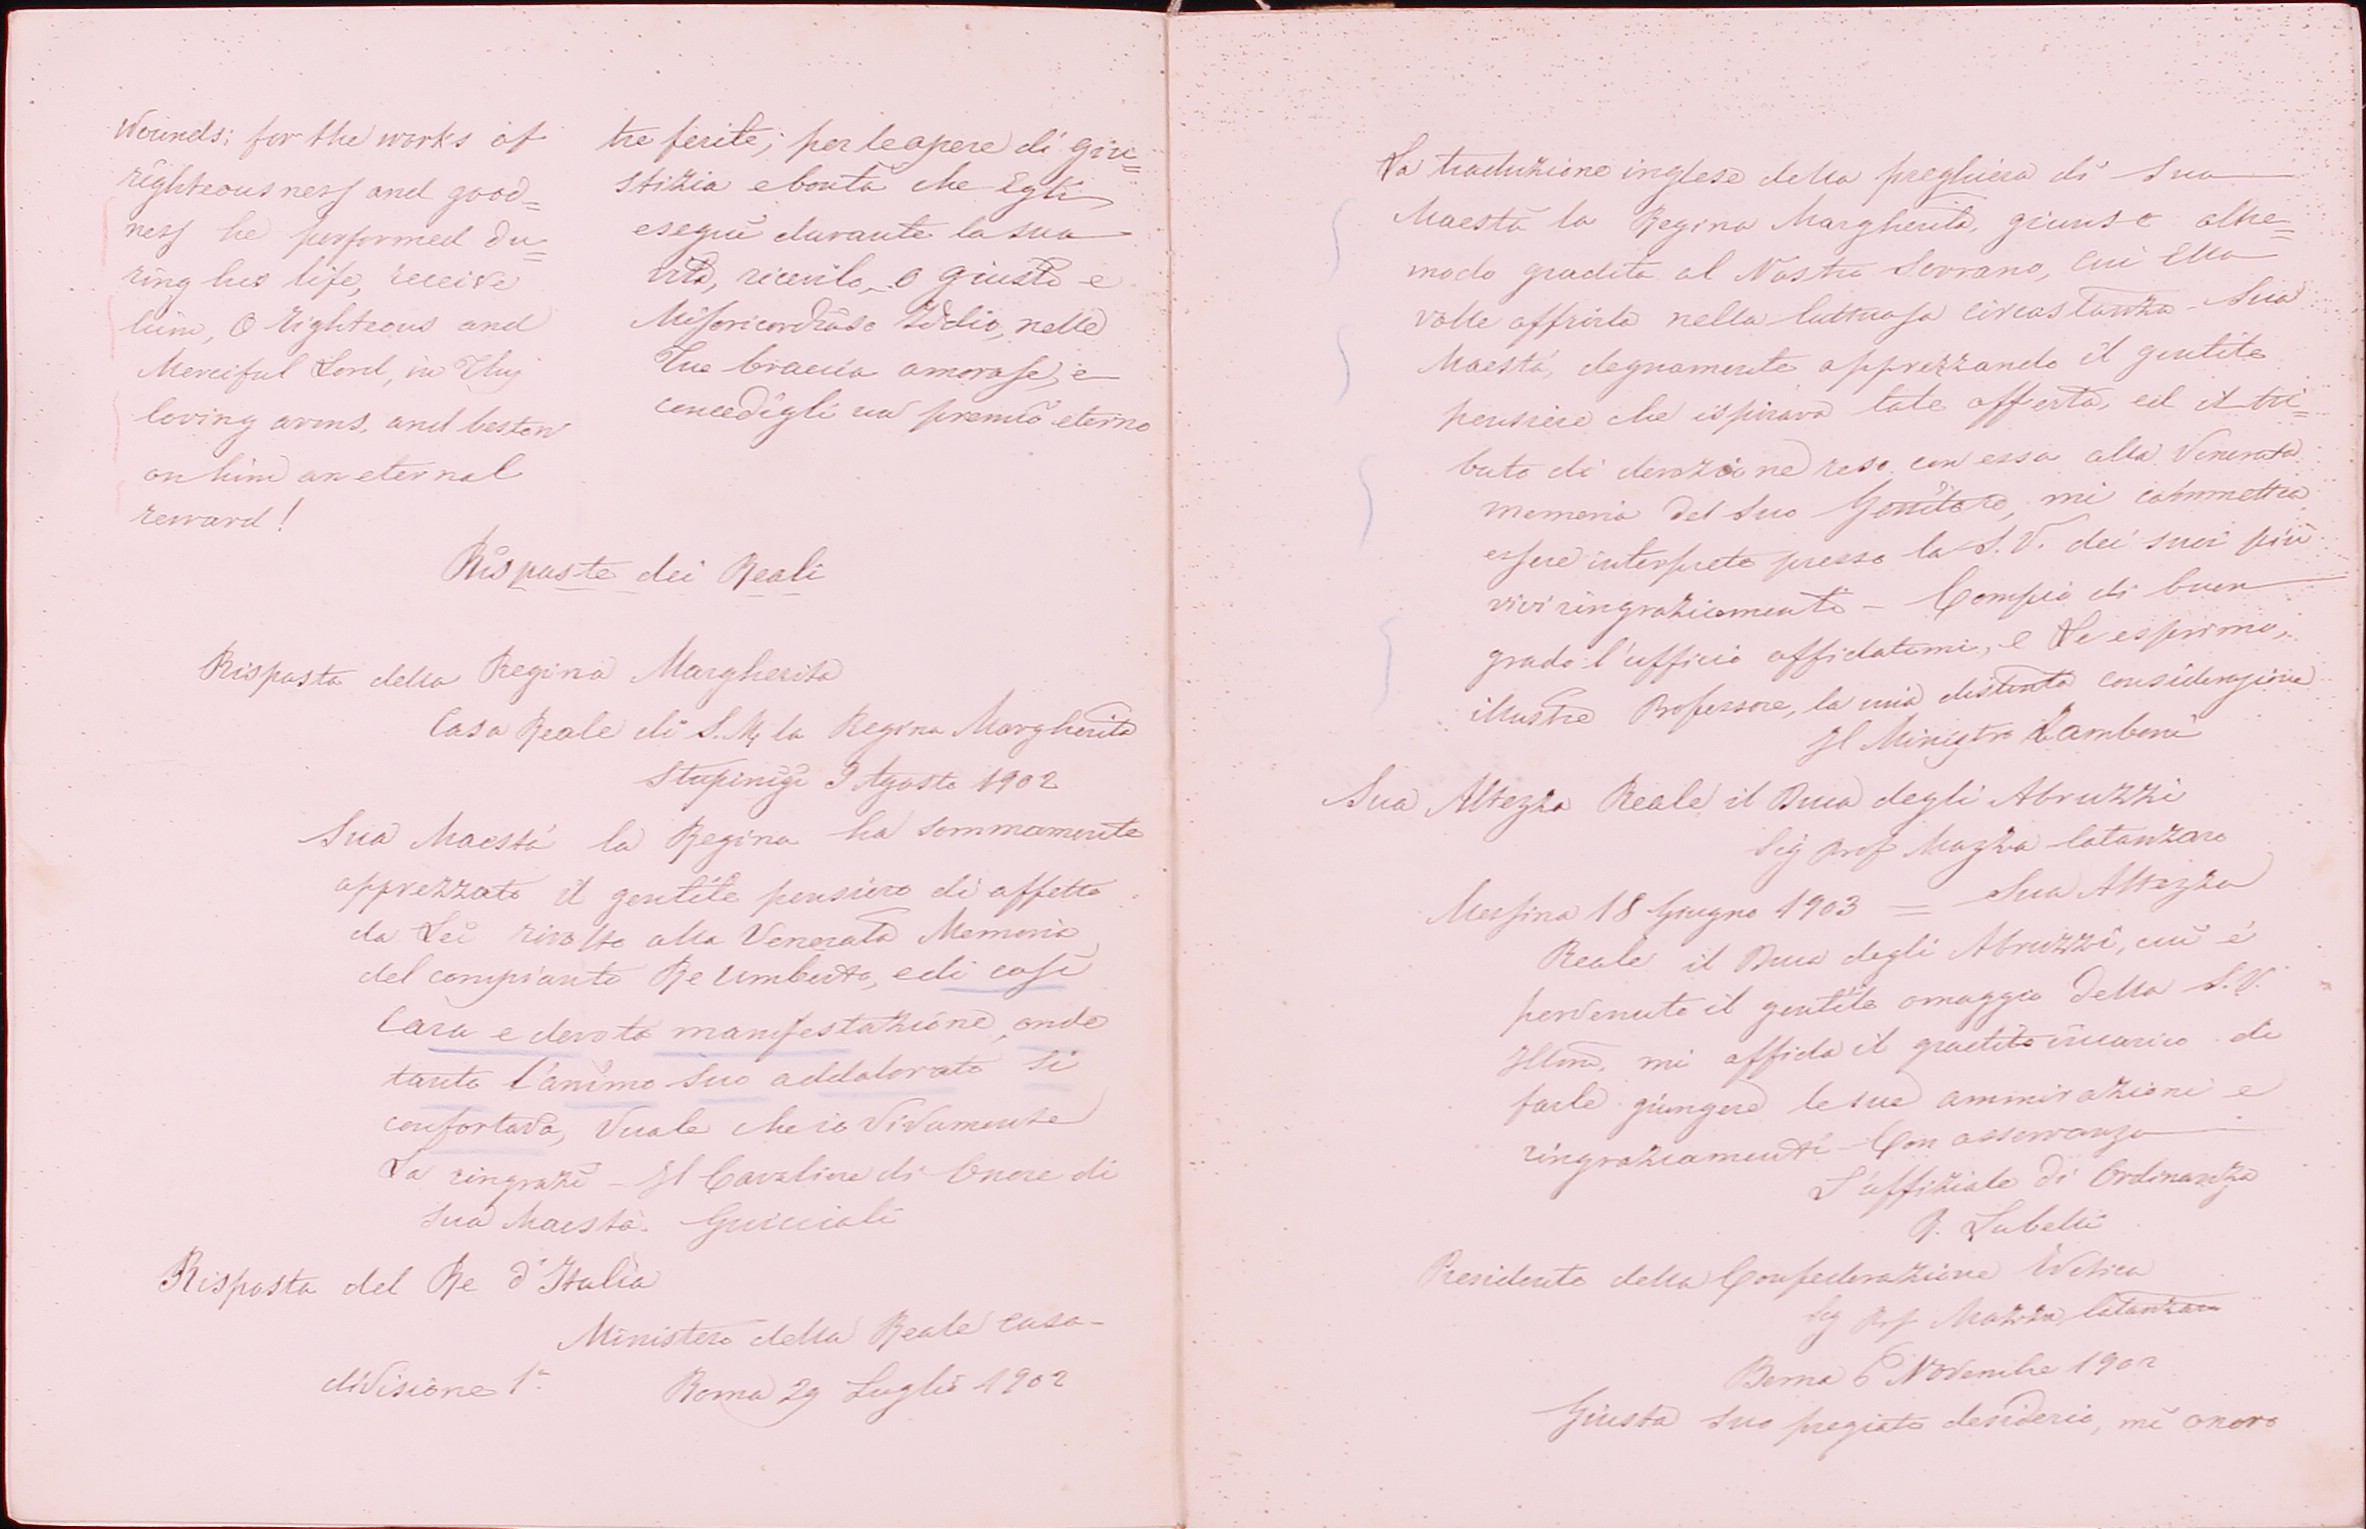 Wounds; for the works of
righteousness and good=
ness he performed du=
ring his life, receive
him, O Righteous and
Merciful Lord, in Thy
loving arms, and bestow
on him an eternal
reward!
tre ferite; per le opere di giu=
stizia e bontà che Egli
eseguì durante la sua
vita, ricevilo, o giusto e
Misericordioso Iddio, nelle
Tue braccia amorose, e
concedigli un premio eterno
Risposte dei Reali
Risposta della Regina Margherita
Casa Reale di S. M. la Regina Margherita
Stupinigi 9 Agosto 1902
Sua Maestà la Regina ha sommamente
apprezzato il gentile pensiero di affetto
da Lei rivolto alla Venerata Memoria
del compianto Re Umberto, e di così
cara e devota manifestazione, onde
tanto l'animo suo addolorato si
confortava, vuole che io vivamente
La ringrazi - Il Cavaliere di Onore di
Sua Maestà. Guiccioli
Risposta del Re d'Italia
Ministero della Reale Casa -
divisione 1ª Roma 29 Luglio 1902
La traduzione inglese della preghiera di Sua
Maestà la Regina Margherita, giunse oltre=
modo gradita al Nostro Sovrano, cui Ella
volle offrirla nella luttuosa circostanza - Sua
Maestà, degnamente apprezzando il gentile
pensiero che ispirava tale offerta, ed il tri=
buto di devozione reso con essa alla Venerata
memoria del Suo Genitore, mi commetteva
essere interprete presso la S. V. dei suoi più
vivi ringraziamenti - Compio di buon
grado l'ufficio affidatomi, e Le esprimo,
illustre Professore, la mia distinta considerazione
Il Ministro Lamboni
Sua Altezza Reale il Duca degli Abruzzi
Sig Prof Mazza Catanzaro
Messina 18 Giugno 1903 = Sua Altezza
Reale il Duca degli Abruzzi, cui è
pervenuto il gentile omaggio della S. V.
Illma, mi affida il gradito incarico di
farle giungere le sue ammirazioni e
ringraziamenti - Con osservanza
L'uffiziale di Ordinanza
R. Lubelli
Presidente della Confederazione Elvetica
Sig Prof Mazza Catanzaro
Berna 6 Novembre 1902
Giusta suo pregiato desiderio, mi onoro